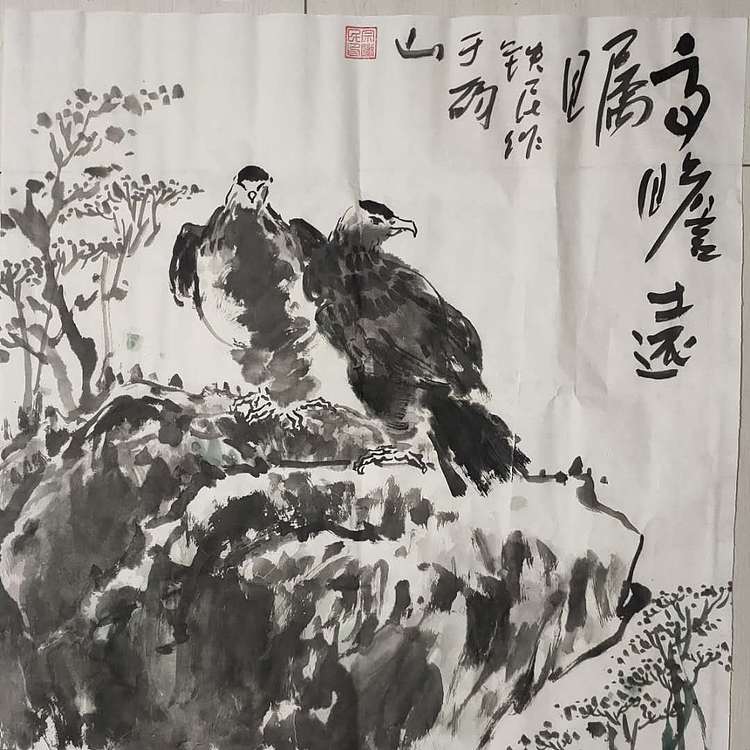 高瞻遠
瞩
铁民作
于
山